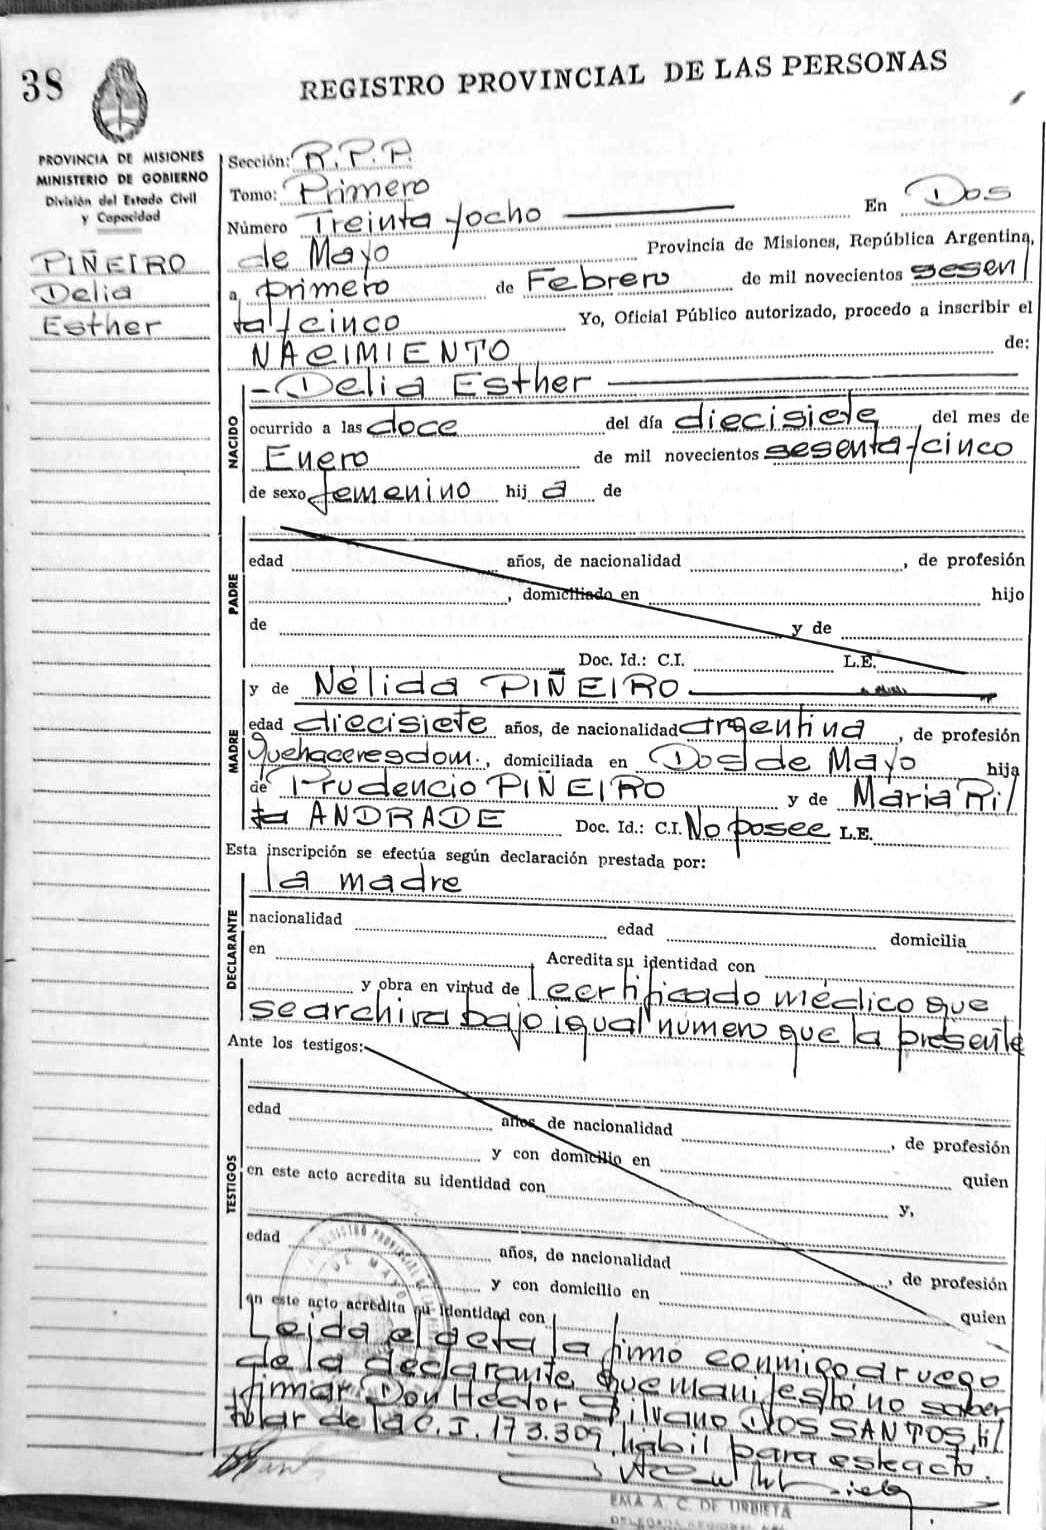 38
REGISTRO PROVINCIAL DE LAS PERSONAS
PROVINCIA DE MISIONES
MINISTERIO DE GOBIERNO
División del Estado Civil
y Capacidad
PIÑEIRO
Delia
Esther
Sección: R.P.P.
Tomo: Primero
Número Treinta y ocho En Dos
de Mayo Provincia de Misiones, República Argentina,
a primero de Febrero de mil novecientos sesen
ta y cinco Yo, Oficial Público autorizado, procedo a inscribir el
NACIMIENTO de:
NACIDO
- Delia Esther
ocurrido a las doce del día diecisiete del mes de
Enero de mil novecientos sesenta y cinco
de sexo femenino hij a de
PADRE
edad años, de nacionalidad , de profesión
, domiciliado en hijo
de y de
Doc. Id.: C.I. L.E.
MADRE
y de Nélida PIÑEIRO
edad diecisiete años, de nacionalidad argentina , de profesión
Quehaceres dom. , domiciliada en Dos de Mayo hija
de Prudencio PIÑEIRO y de Maria Ri
ta ANDRADE Doc. Id.: C.I. No posee L.E.
Esta inscripción se efectúa según declaración prestada por:
DECLARANTE
la madre
nacionalidad edad domicilia
en Acredita su identidad con
y obra en virtud de certificado médico que
se archiva bajo igual número que la presente
Ante los testigos:
TESTIGOS
edad años, de nacionalidad , de profesión
y con domicilio en quien
en este acto acredita su identidad con y,
edad años, de nacionalidad , de profesión
y con domicilio en quien
en este acto acredita su identidad con
Leida el acta la firmó conmigo a ruego
de la declarante que manifestó no saber
firmar Don Hector Silvano DOS SANTOS, ti
tular de la C.I. 173.309, habil para este acto.
EMA A. C. DE URBIETA
DELEGADA REGIONAL